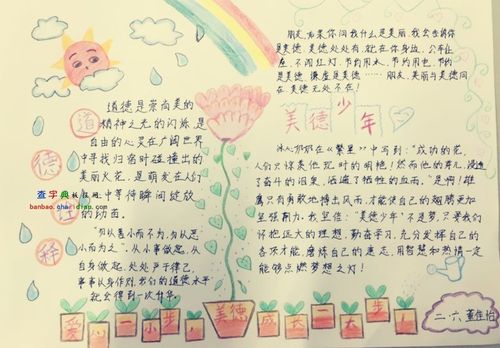 道德是崇尚美的
精神之光的闪烁,是
自由的心灵在广阔世界
中寻找归宿时碰撞出的
美丽火花,是萌发在人们
中等待瞬间绽放
的动苗。
"勿以善小而不为,勿以恶
小而为之",从小事做起,从
自身做起,处处严于律己,
事事从身作则,我们的道德水平
就会得到一次升华。
道
德
诠
释
查字典
banbao.chazidian.com
朋友,如果你问我什么是美丽,我会告诉你
是美德。美德处处有,就在你身边,公车让
座,不闯红灯,节约用水,节约用电,节约
是美德,谦虚是美德……朋友,美丽与美德同
在,美德无处不在!
美德少年
冰心奶奶在《繁星》中写到:"成功的花,
人们只惊羡他现时的明艳!然而他的芽儿,浸透
了奋斗的泪泉,洒遍了牺牲的血雨。"是啊!雄
鹰只有勇敢地搏击风雨,才能使自己的翅膀更加
坚强刚力。我坚信:"美德少年"不是梦,只要我们
怀把远大的理想,勤奋学习,充分发挥自己的
各项才能,磨炼自己的意志,用智慧和热情一定
能够点燃梦想之灯!
爱心一小步,美德成长一大步!
二·六 董佳怡